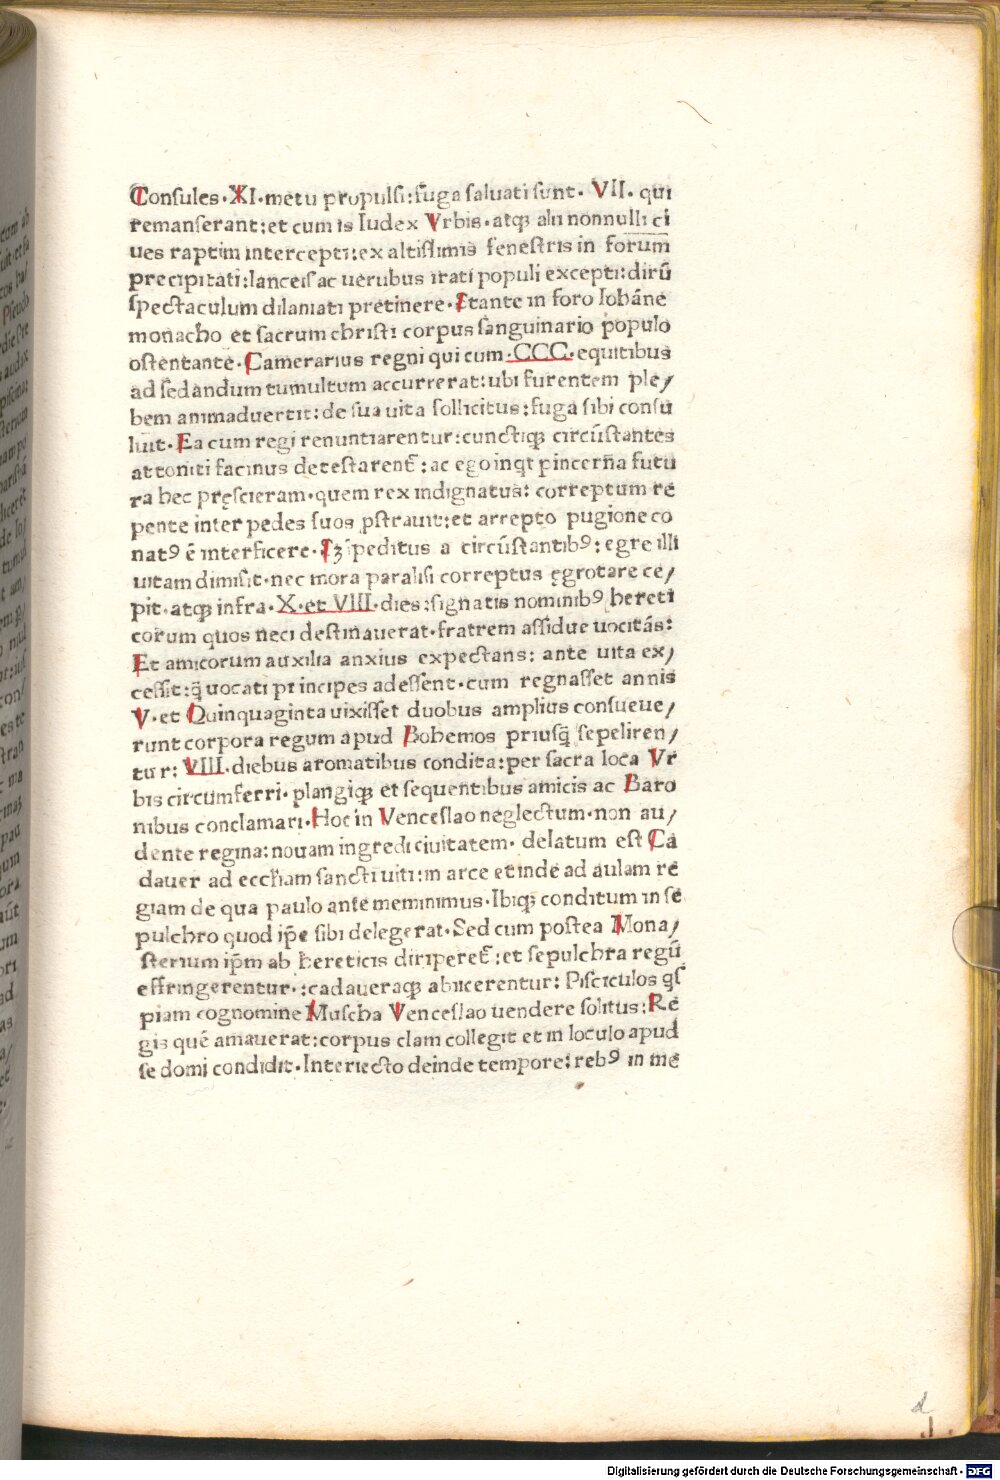 Consules·XI·metu propulsi:fuga saluati sunt· VII· qui
remanserant:et cum is Iudex Vrbis·atqꝫ alii nonnulli ci
ues raptim intercepti:ex altissimis fenestris in forum
precipitati:lanceis ac uerubus irati populi excepti:dirū
spectaculum dilaniati pretinere·Stante in foro Iohāne
monacho et sacrum christi corpus sanguinario populo
ostentante·Camerarius regni qui cum·CCC·equitibus
ad sedandum tumultum accurrerat:ubi furentem ple/
bem animaduertit:de sua uita sollicitus:fuga sibi consu
luit·Ea cum regi renuntiarentur:cunctiqꝫ circūstantes
attoniti facinus detestarent᷑:ac ego inqt pincerna futu
ra hec prescieram·quem rex indignatus: correptum re
pente inter pedes suos pstrauit:et arrepto pugione co
natꝰ ē interficere· Iꝫ ipeditus a circūstantibꝰ:egre illi
uitam dimisit·nec mora paralisi correptus ęgrotare ce/
pit·atqꝫ infra·X·et VIII·dies:signatis nominibꝰ hereti
corum quos neci destinauerat·fratrem assidue uocitās:
Et amicorum auxilia anxius expectans: ante uita ex/
cessit:q̄ uocati principes adessent·cum regnasset annis
V·et Quinquaginta uixisset duobus amplius consueue/
runt corpora regum apud Bohemos priusq̄ sepeliren/
tur: VIII·diebus aromatibus condita:per sacra loca Vr
bis circumferri·plangiqꝫ et sequentibus amicis ac Baro
nibus conclamari·Hoc in Venceslao neglectum·non au/
dente regina:nouam ingredi ciuitatem· delatum est Ca
dauer ad ecch̄am sancti uiti:in arce et inde ad aulam re
giam de qua paulo ante meminimus·Ibiqꝫ conditum in se
pulchro quod ip̄e sibi delegerat·Sed cum postea Mona/
sterium ip̄m ab hereticis diriperet᷑:et sepulchra regū
effringerentur·:cadaueraqꝫ abiicerentur: Pisciculos qs
piam cognomine Muscha Venceslao uendere solitus:Re
gis quē amauerat:corpus clam collegit et in loculo apud
se domi condidit·Interiecto deinde tempore:rebꝰ in me
d
Digitalisierung gefördert durch die Deutsche Forschungsgemeinschaft - DFG